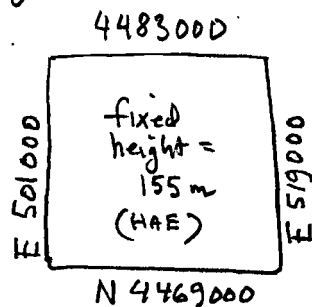 4483000
E 501000
fixed
height =
155 m
(HAE)
E 519000
N 4469000